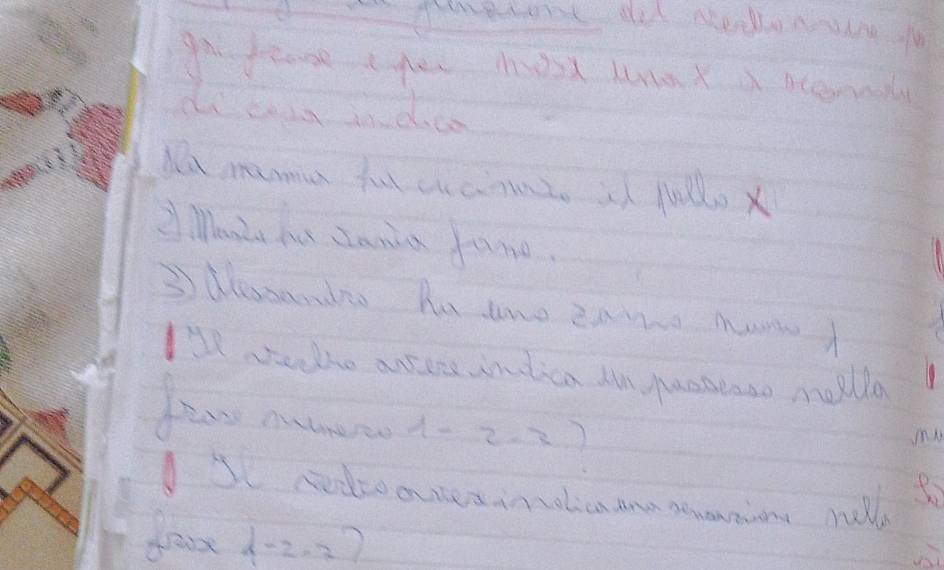 funzione del verbo avere in
gni frase e per una X a seconda
di cosa indica
La mamma ha cucinato il pollo X
2) Mario ha tanta fame.
3) Alessandro ha uno zaino nuovo
Il verbo avere indica un possesso nella
frase numero 1-2-3?
Il verbo avere indica una sensazione nella
frase 1-2-3?